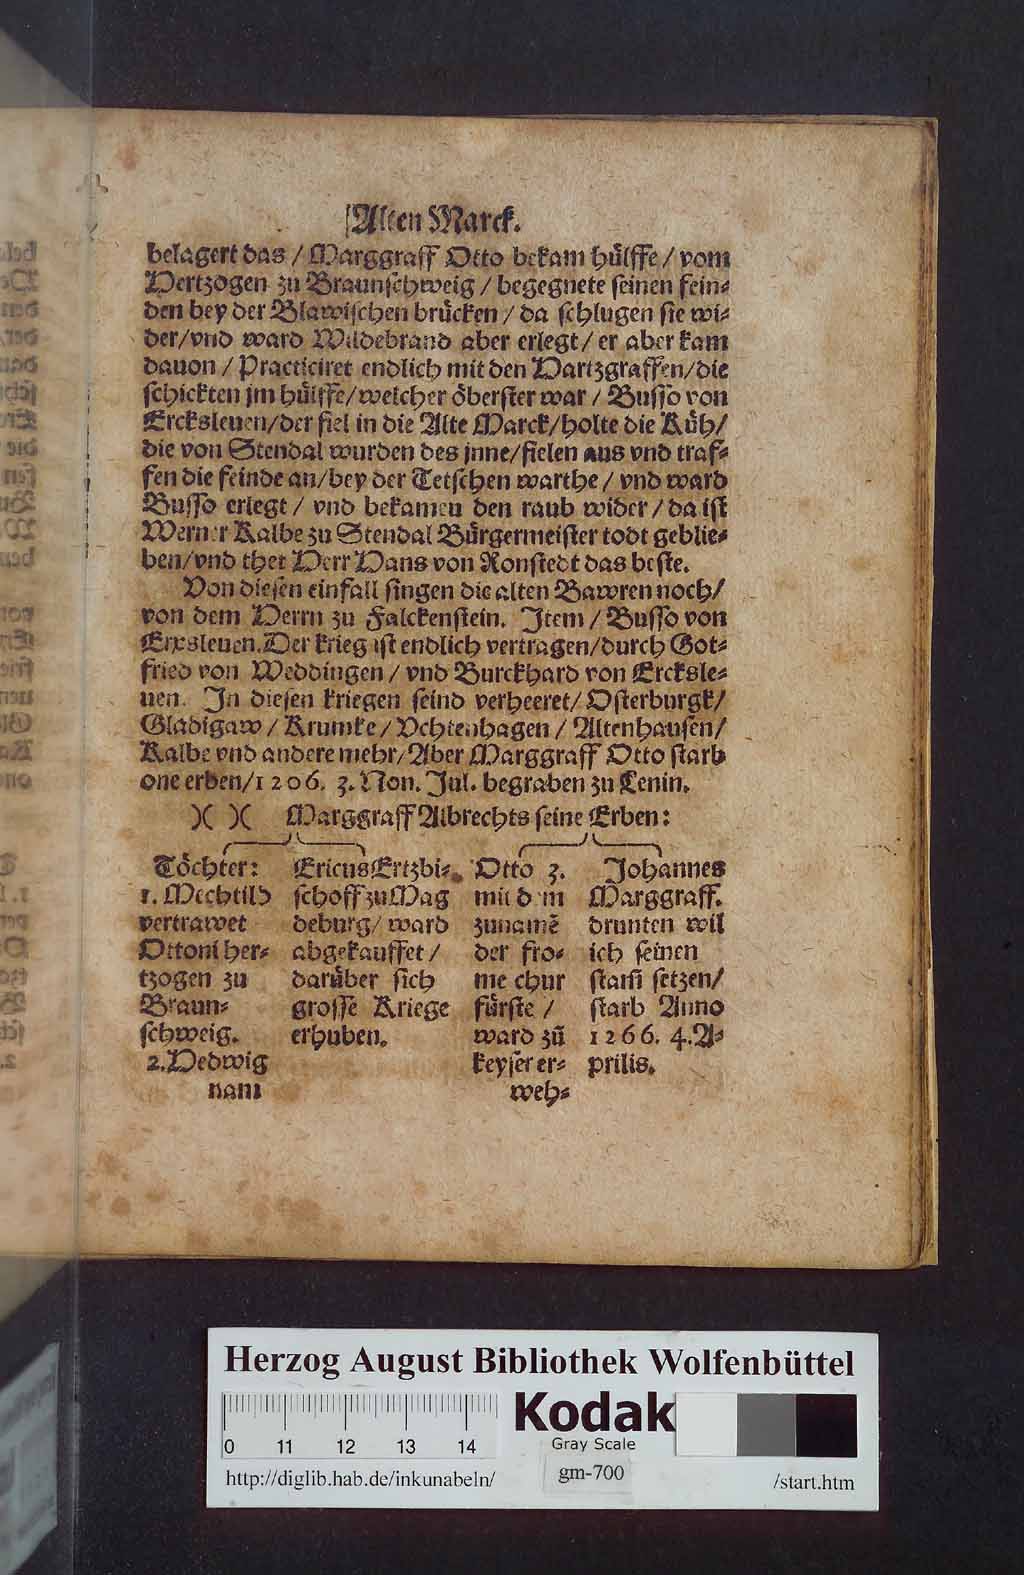 Alten Marck.
belagert das / Marggraff Otto bekam hülffe / vom
Hertzogen zu Braunschweig / begegnete seinen fein-
den bey der Blawischen brücken / da schlugen sie wi-
der/vnd ward Hildebrand aber erlegt / er aber kam
dauon / Practiciret endlich mit den Hartzgraffen/die
schickten jm hülffe/welcher öberster war / Busso von
Ercksleuen/der fiel in die Alte Marck/holte die Küh/
die von Stendal wurden des jnne/fielen aus vnd traf-
fen die feinde an/bey der Tetschen warthe / vnd ward
Busso erlegt / vnd bekamen den raub wider / da ist
Werner Kalbe zu Stendal Bürgermeister todt geblie-
ben/vnd thet Herr Hans von Ronstedt das beste.
Von diesen einfall singen die alten Bawren noch/
von dem Herrn zu Falckenstein. Item / Busso von
Erxsleuen. Der krieg ist endlich vertragen/durch Got-
fried von Weddingen / vnd Burckhard von Ercksle-
uen. In diesen kriegen seind verheeret/ Osterburgk/
Gladigaw / Krumke / Vchtenhagen / Altenhausen/
Kalbe vnd andere mehr/Aber Marggraff Otto starb
one erben/1206. 3. Non. Jul. begraben zu Lenin.
)( )( Marggraff Albrechts seine Erben:
Töchter:
1. Mechtild
vertrawet
Ottoni her-
tzogen zu
Braun-
schweig.
2. Hedwig
nam
Ericus Ertzbi-
schoff zu Mag
deburg/ ward
abgekauffet /
darüber sich
grosse Kriege
erhuben.
Otto 3.
mit dem
zunamē
der fro-
me chur
fürste /
ward zū
keyser er-
weh-
Johannes
Marggraff.
drunten wil
ich seinen
stam setzen/
starb Anno
1266. 4. A-
prilis.
Herzog August Bibliothek Wolfenbüttel
0 11 12 13 14
Kodak
Gray Scale
http://diglib.hab.de/inkunabeln/
gm-700
/start.htm